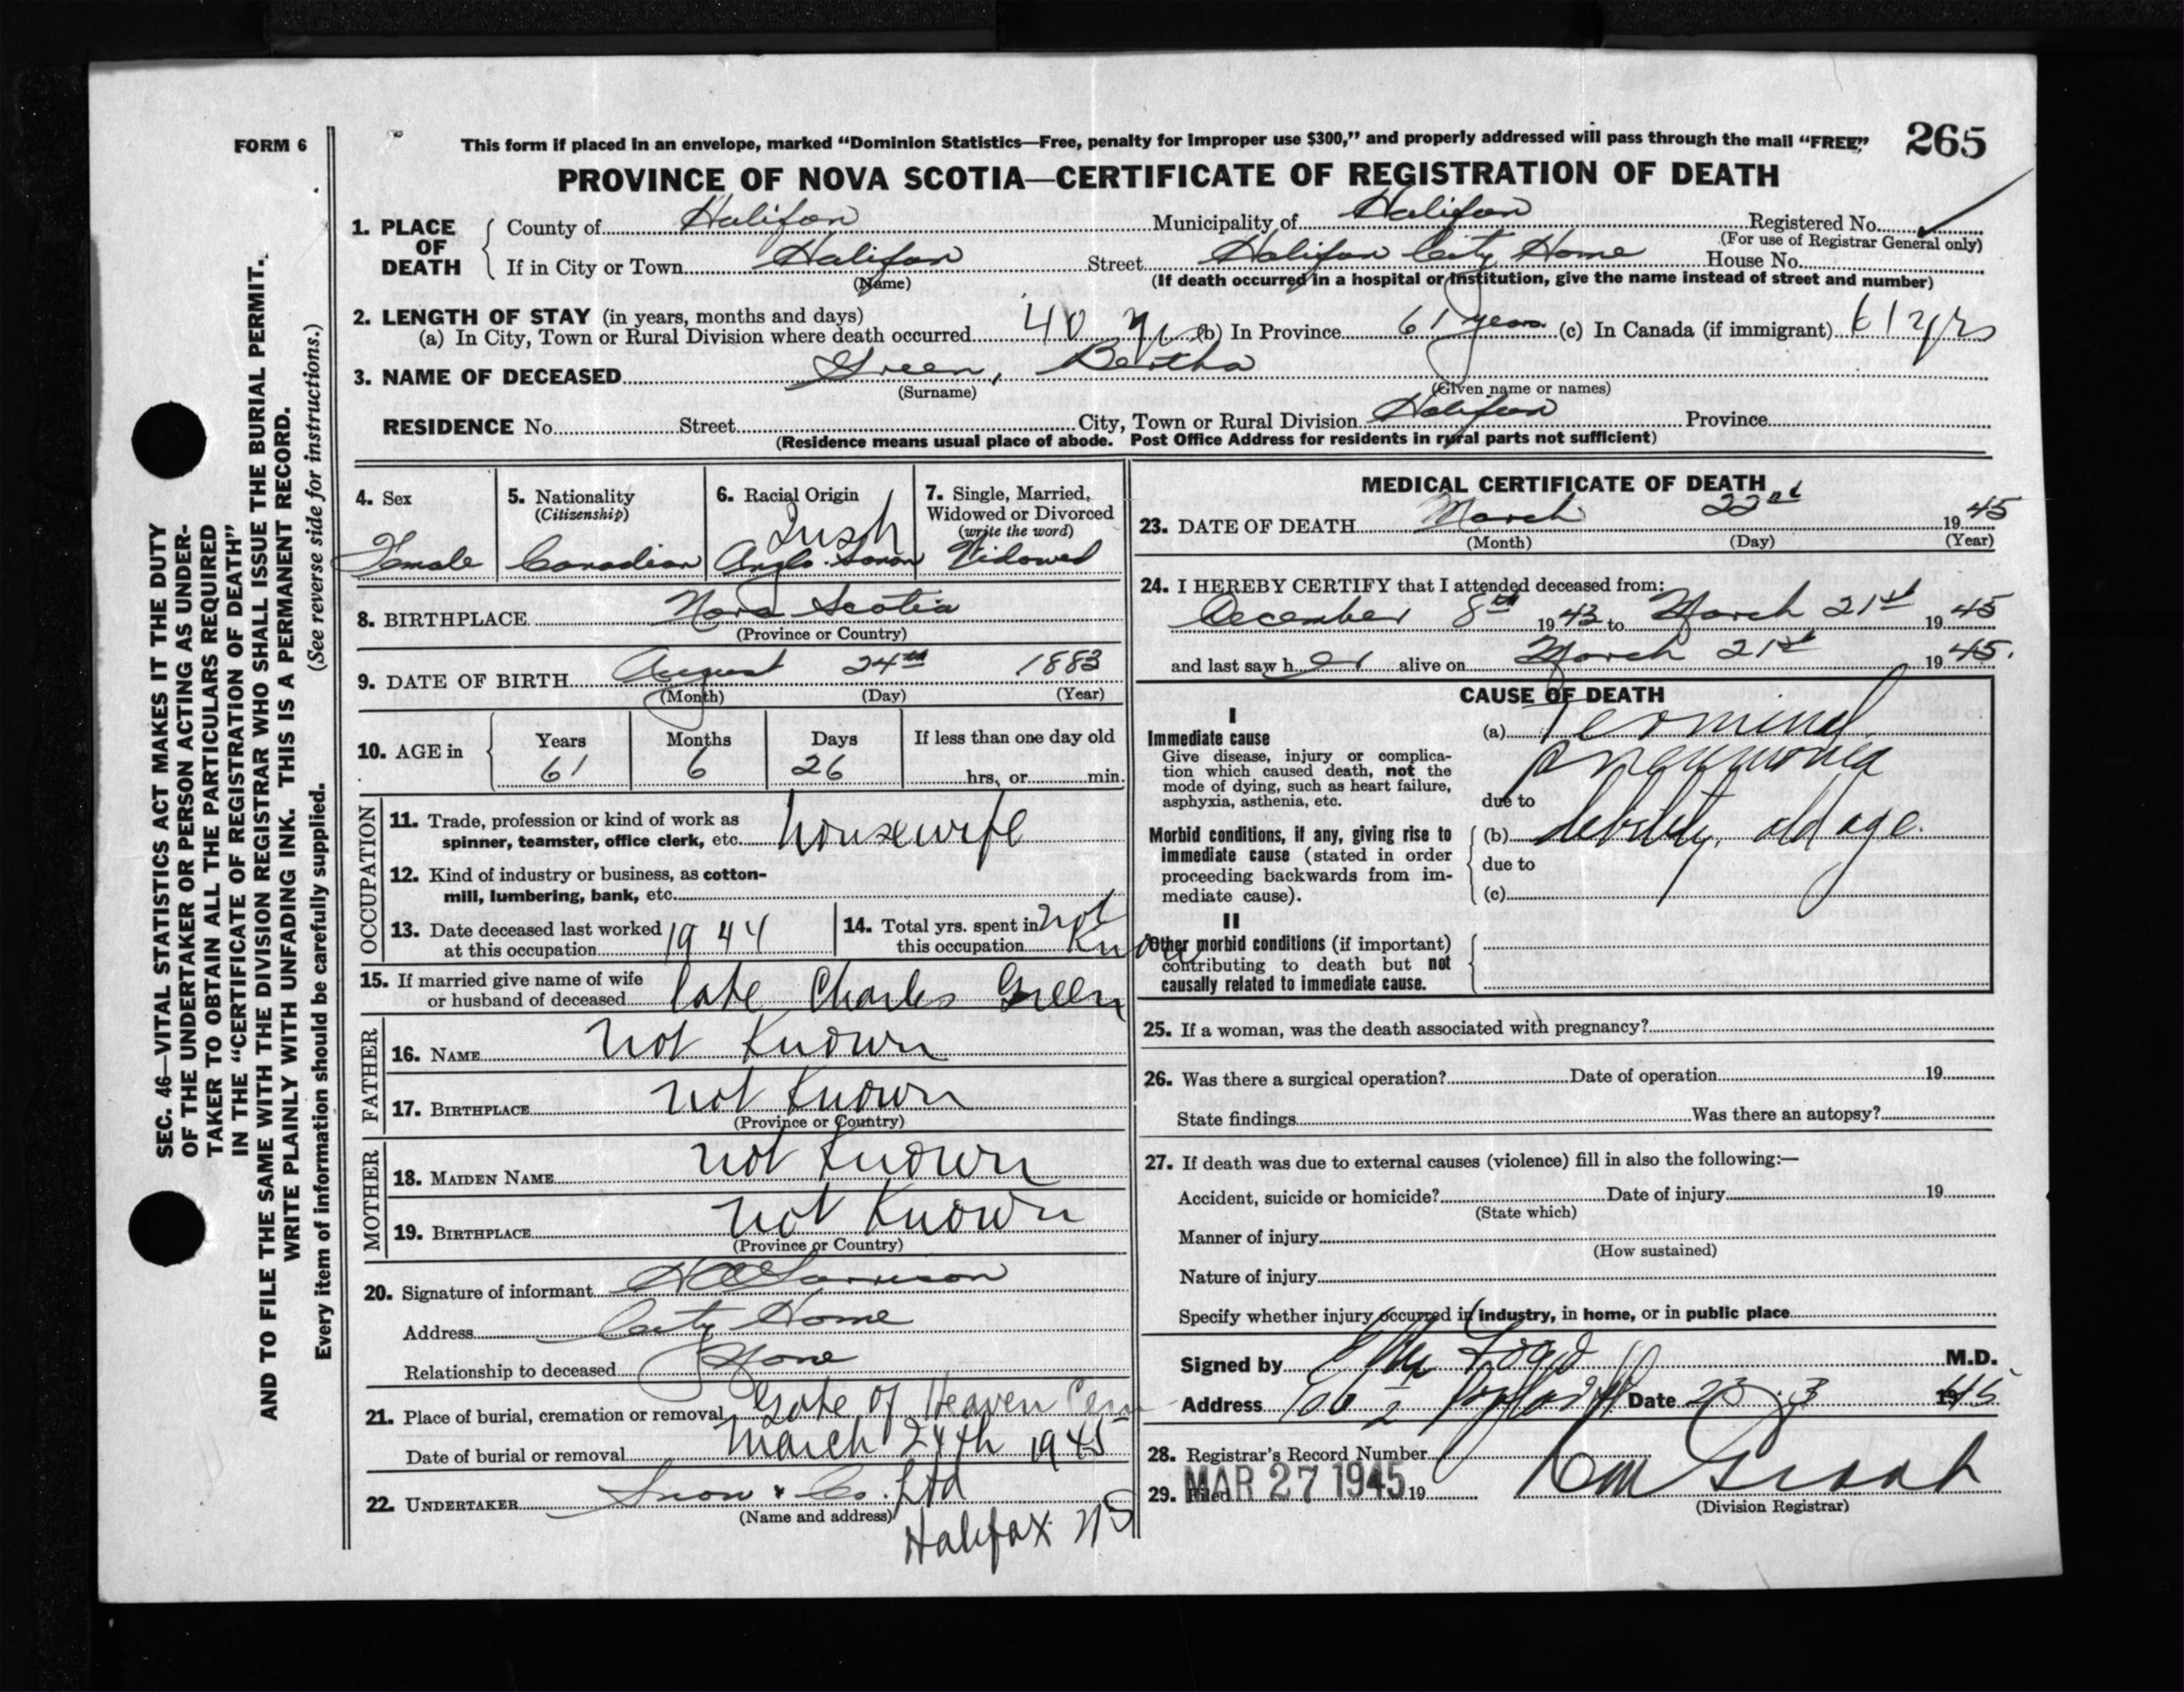 FORM 6
This form if placed in an envelope, marked "Dominion Statistics—Free, penalty for improper use $300," and properly addressed will pass through the mail "FREE"
265
PROVINCE OF NOVA SCOTIA—CERTIFICATE OF REGISTRATION OF DEATH
1. PLACE OF DEATH
County of Halifax Municipality of Halifax Registered No.
(For use of Registrar General only)
If in City or Town Halifax Street Halifax City Home House No.
(Name) (If death occurred in a hospital or institution, give the name instead of street and number)
2. LENGTH OF STAY (in years, months and days)
(a) In City, Town or Rural Division where death occurred 40 yrs (b) In Province 61 years (c) In Canada (if immigrant) 61 yrs
3. NAME OF DECEASED Green, Bertha
(Surname) (Given name or names)
RESIDENCE No. Street City, Town or Rural Division Halifax Province
(Residence means usual place of abode. Post Office Address for residents in rural parts not sufficient)
4. Sex
Female
5. Nationality
(Citizenship)
Canadian
6. Racial Origin
Irish
Anglo-Saxon
7. Single, Married, Widowed or Divorced
(write the word)
Widowed
8. BIRTHPLACE Nova Scotia
(Province or Country)
9. DATE OF BIRTH August 24th 1883
(Month) (Day) (Year)
10. AGE in Years Months Days If less than one day old
61 6 26 hrs, or min.
OCCUPATION
11. Trade, profession or kind of work as
spinner, teamster, office clerk, etc. housewife
12. Kind of industry or business, as cotton-
mill, lumbering, bank, etc.
13. Date deceased last worked
at this occupation 1944
14. Total yrs. spent in
this occupation not Know
15. If married give name of wife
or husband of deceased late Charles Green
FATHER
16. NAME not Known
17. BIRTHPLACE not Known
(Province or Country)
MOTHER
18. MAIDEN NAME not Known
19. BIRTHPLACE not Known
(Province or Country)
20. Signature of informant
Address City Home
Relationship to deceased None
21. Place of burial, cremation or removal Gate of Heaven Cem
Date of burial or removal March 24th 1945
22. UNDERTAKER Snow & Co. Ltd
(Name and address)
Halifax NS
MEDICAL CERTIFICATE OF DEATH
23. DATE OF DEATH March 22nd 1945
(Month) (Day) (Year)
24. I HEREBY CERTIFY that I attended deceased from:
December 8th 1943 to March 21st 1945
and last saw her alive on March 21st 1945.
CAUSE OF DEATH
I
Immediate cause
Give disease, injury or complica-
tion which caused death, not the
mode of dying, such as heart failure,
asphyxia, asthenia, etc.
(a) Terminal
pneumonia
due to
Morbid conditions, if any, giving rise to
immediate cause (stated in order
proceeding backwards from im-
mediate cause).
(b) debility, old age.
due to
(c)
II
Other morbid conditions (if important)
contributing to death but not
causally related to immediate cause.
25. If a woman, was the death associated with pregnancy?
26. Was there a surgical operation? Date of operation 19
State findings Was there an autopsy?
27. If death was due to external causes (violence) fill in also the following:—
Accident, suicide or homicide? Date of injury 19
(State which)
Manner of injury
(How sustained)
Nature of injury
Specify whether injury occurred in industry, in home, or in public place
Signed by M.D.
Address Date 23 3 1945
28. Registrar's Record Number
29. Filed MAR 27 1945 19
(Division Registrar)
SEC. 46—VITAL STATISTICS ACT MAKES IT THE DUTY
OF THE UNDERTAKER OR PERSON ACTING AS UNDER-
TAKER TO OBTAIN ALL THE PARTICULARS REQUIRED
IN THE "CERTIFICATE OF REGISTRATION OF DEATH"
AND TO FILE THE SAME WITH THE DIVISION REGISTRAR WHO SHALL ISSUE THE BURIAL PERMIT.
WRITE PLAINLY WITH UNFADING INK. THIS IS A PERMANENT RECORD.
Every item of information should be carefully supplied. (See reverse side for instructions.)